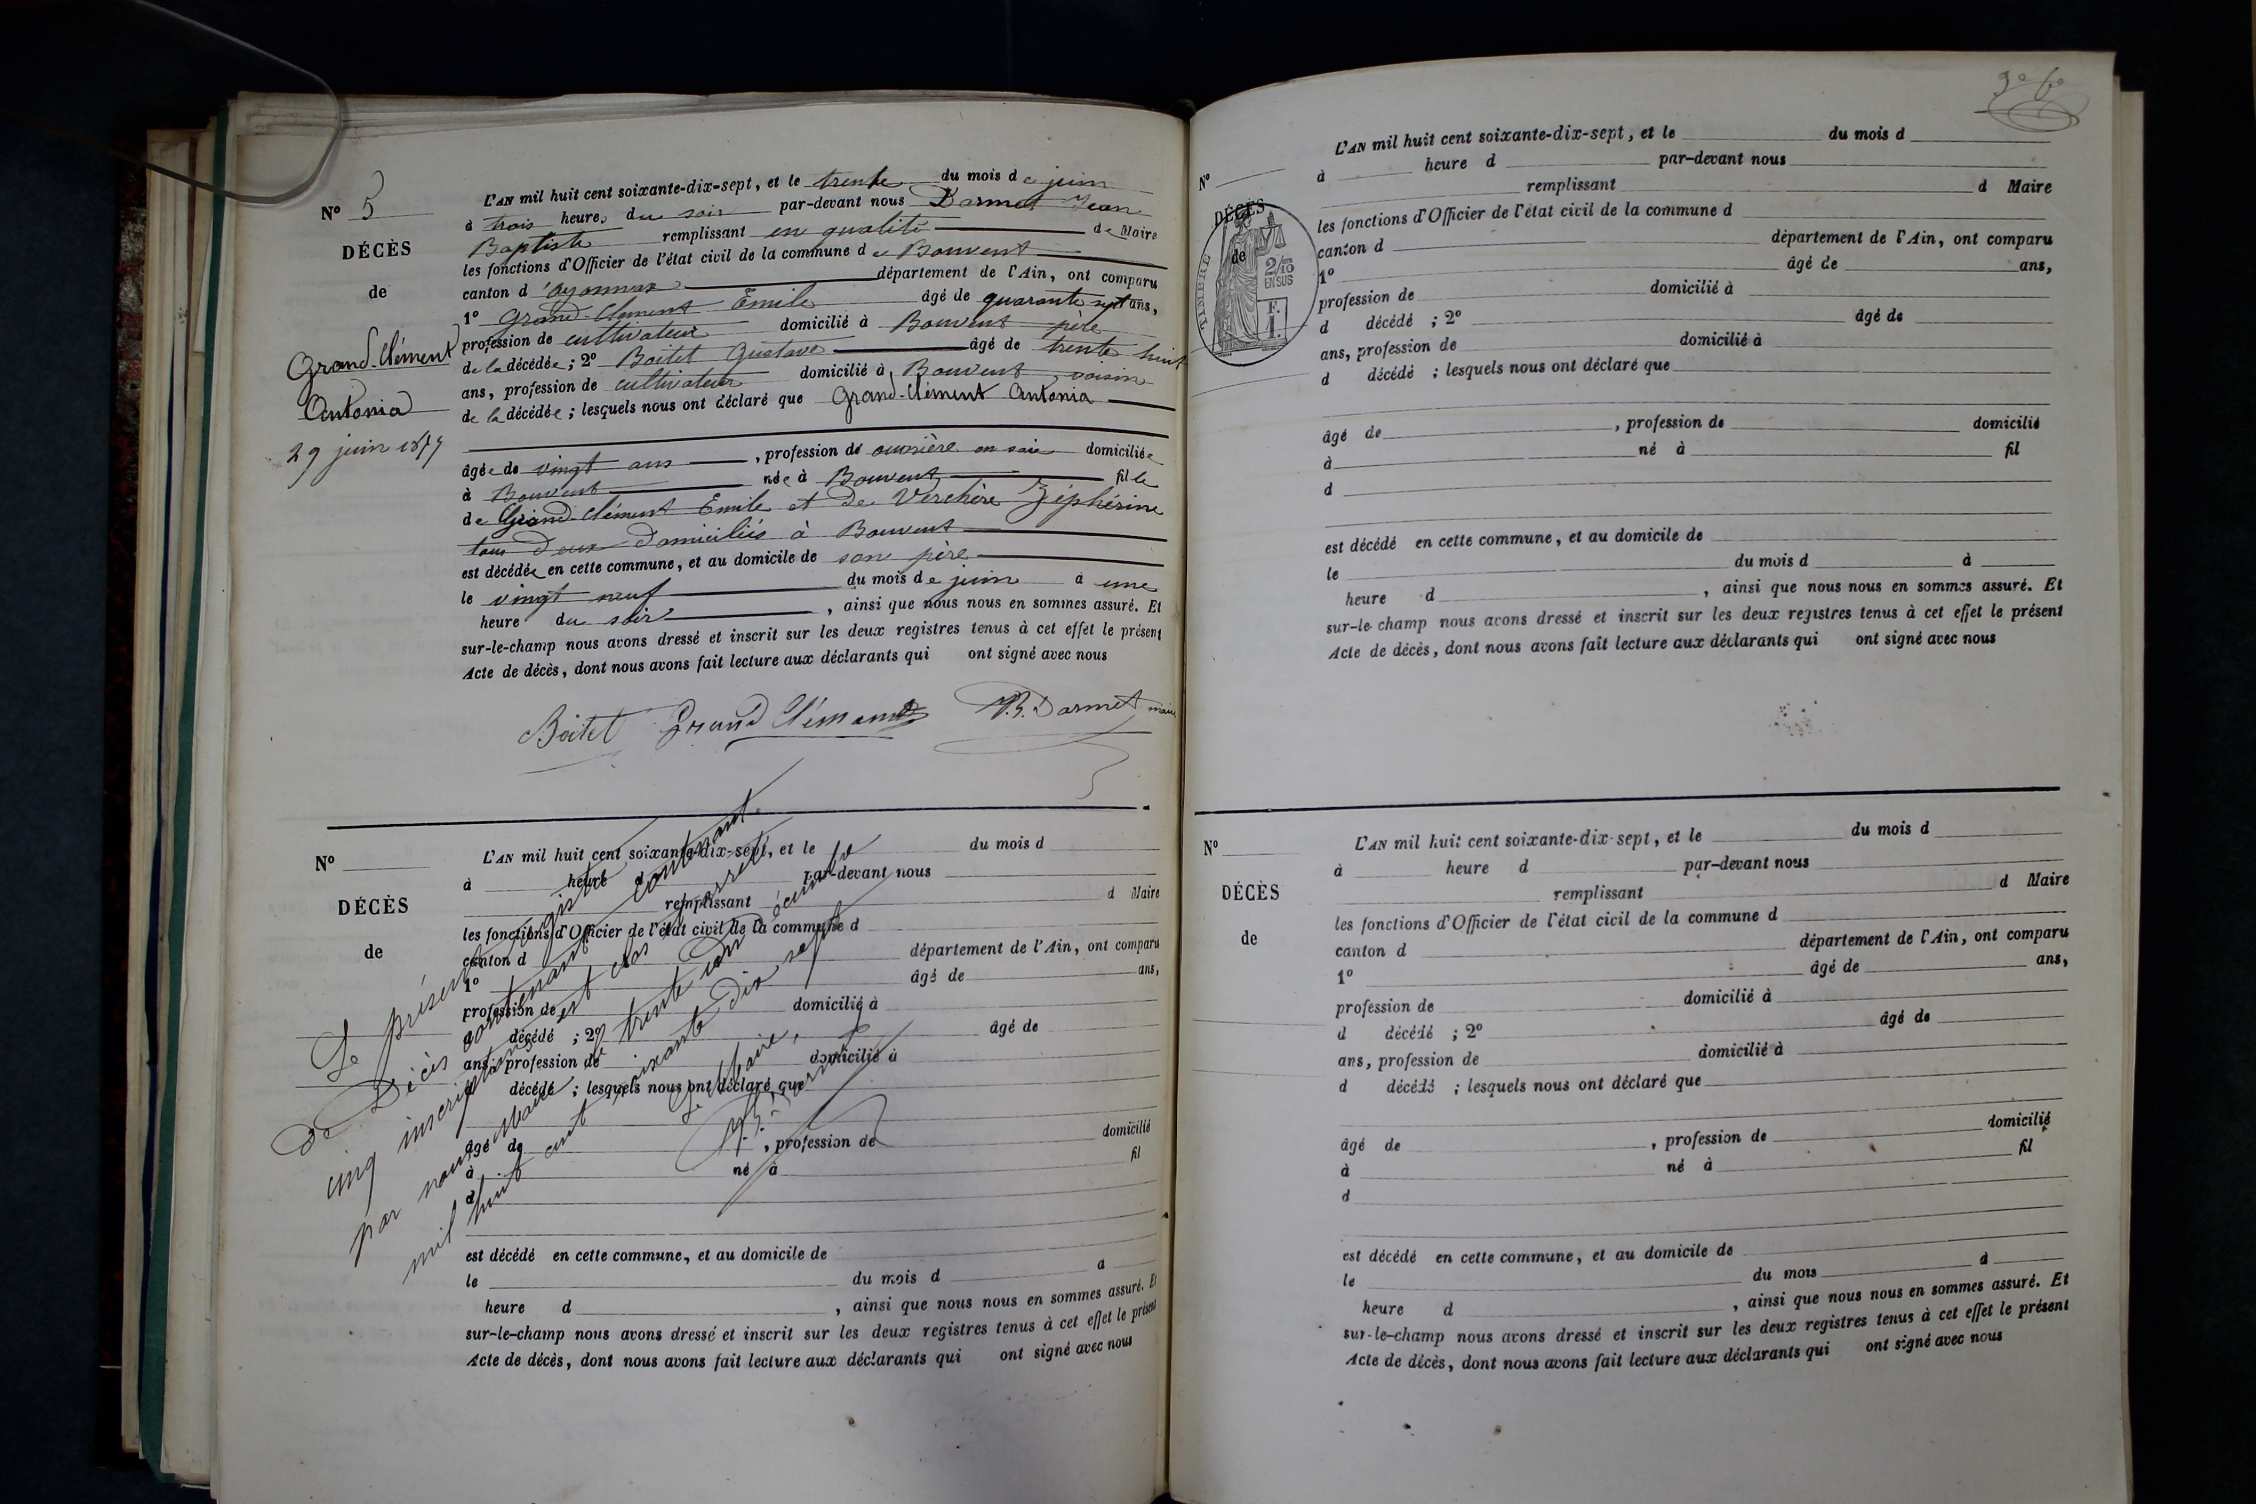 N° 5
DÉCÈS
de
Grand-Clément
Antonia
29 juin 1877
L'AN mil huit cent soixante-dix-sept, et le trente du mois de juin
à trois heures du soir par-devant nous Darmet Jean
Baptiste remplissant en qualité de Maire
les fonctions d'Officier de l'état civil de la commune de Bouvent
canton d'oyonnax département de l'Ain, ont comparu
1° Grand-Clément Émile âgé de quarante sept ans,
profession de cultivateur domicilié à Bouvent père
de la décédée; 2° Boitet Gustave âgé de trente huit
ans, profession de cultivateur domicilié à Bouvent voisin
de la décédée; lesquels nous ont déclaré que Grand-Clément Antonia
âgée de vingt ans, profession de ouvrière en soie domiciliée
à Bouvent née à Bouvent fille
de Grand-Clément Emile et de Verchère Zéphirine
tous deux domiciliés à Bouvent
est décédée en cette commune, et au domicile de son père
le vingt neuf du mois de juin à une
heure du soir, ainsi que nous nous en sommes assuré. Et
sur-le-champ nous avons dressé et inscrit sur les deux registres tenus à cet effet le présent
Acte de décès, dont nous avons fait lecture aux déclarants qui ont signé avec nous
Boitet Grand Clément J.B. Darmet maire
N°
DÉCÈS
de
L'AN mil huit cent soixante-dix-sept, et le du mois d
à heure d par-devant nous
remplissant d Maire
les fonctions d'Officier de l'état civil de la commune d
canton d département de l'Ain, ont comparu
1° âgé de ans,
profession de domicilié à
d décédé ; 2° âgé de
ans, profession de domicilié à
d décédé ; lesquels nous ont déclaré que
âgé de , profession de domicilié
à né à fil
d
est décédé en cette commune, et au domicile de
le du mois d à
heure d , ainsi que nous nous en sommes assuré. Et
sur-le-champ nous avons dressé et inscrit sur les deux registres tenus à cet effet le présent
Acte de décès, dont nous avons fait lecture aux déclarants qui ont signé avec nous
Le présent registre
de Décès contenant
cinq inscriptions est clos et arrêté
par nous Maire le trente un Décembre
mil huit cent soixante dix sept
Le Maire,
J.B. Darmet
N°
DÉCÈS
de
TIMBRE
2/10
EN SUS
F.
1.
L'AN mil huit cent soixante-dix-sept, et le du mois d
à heure d par-devant nous
remplissant d Maire
les fonctions d'Officier de l'état civil de la commune d
canton d département de l'Ain, ont comparu
1° âgé de ans,
profession de domicilié à
d décédé ; 2° âgé de
ans, profession de domicilié à
d décédé ; lesquels nous ont déclaré que
âgé de , profession de domicilié
à né à fil
d
est décédé en cette commune, et au domicile de
le du mois d à
heure d , ainsi que nous nous en sommes assuré. Et
sur-le-champ nous avons dressé et inscrit sur les deux registres tenus à cet effet le présent
Acte de décès, dont nous avons fait lecture aux déclarants qui ont signé avec nous
N°
DÉCÈS
de
L'AN mil huit cent soixante-dix-sept, et le du mois d
à heure d par-devant nous
remplissant d Maire
les fonctions d'Officier de l'état civil de la commune d
canton d département de l'Ain, ont comparu
1° âgé de ans,
profession de domicilié à
d décédé ; 2° âgé de
ans, profession de domicilié à
d décédé ; lesquels nous ont déclaré que
âgé de , profession de domicilié
à né à fil
d
est décédé en cette commune, et au domicile de
le du mois d
heure d , ainsi que nous nous en sommes assuré. Et
sur-le-champ nous avons dressé et inscrit sur les deux registres tenus à cet effet le présent
Acte de décès, dont nous avons fait lecture aux déclarants qui ont signé avec nous